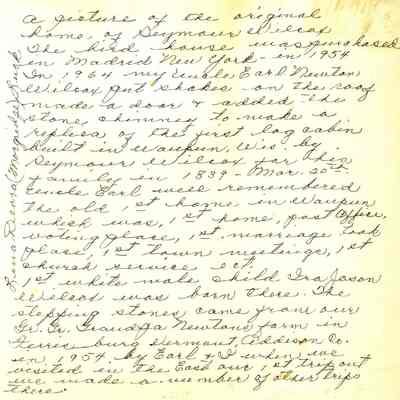 A picture of the original
home, of Seymour Wilcox
The bird house was purchased
in Madrid New York - in 1954
In 1964 my Uncle Earl Newton
Wilcox put shakes on the roof
made a door & added the
stone, chimney to make a
replica of the first log cabin
built in Waupun, Wis. by
Seymour Wilcox for his
family in 1839 - Mar. 20th.
Uncle Earl well remembered
the old 1st home in Waupun
which was, 1st home, post Office,
voting place, 1st. marriage took
place, 1st town meetings, 1st
church service ect.
1st white male child Ira Jason
Wilcox was born there. The
stepping stones came from our
Gr. Gr. Grandpa Newtons farm in
Ferris burg Vermont, Addison Co.
in 1954. by Earl & I when we
visited in the East our 1st trip out
we made a number of other trips
there.